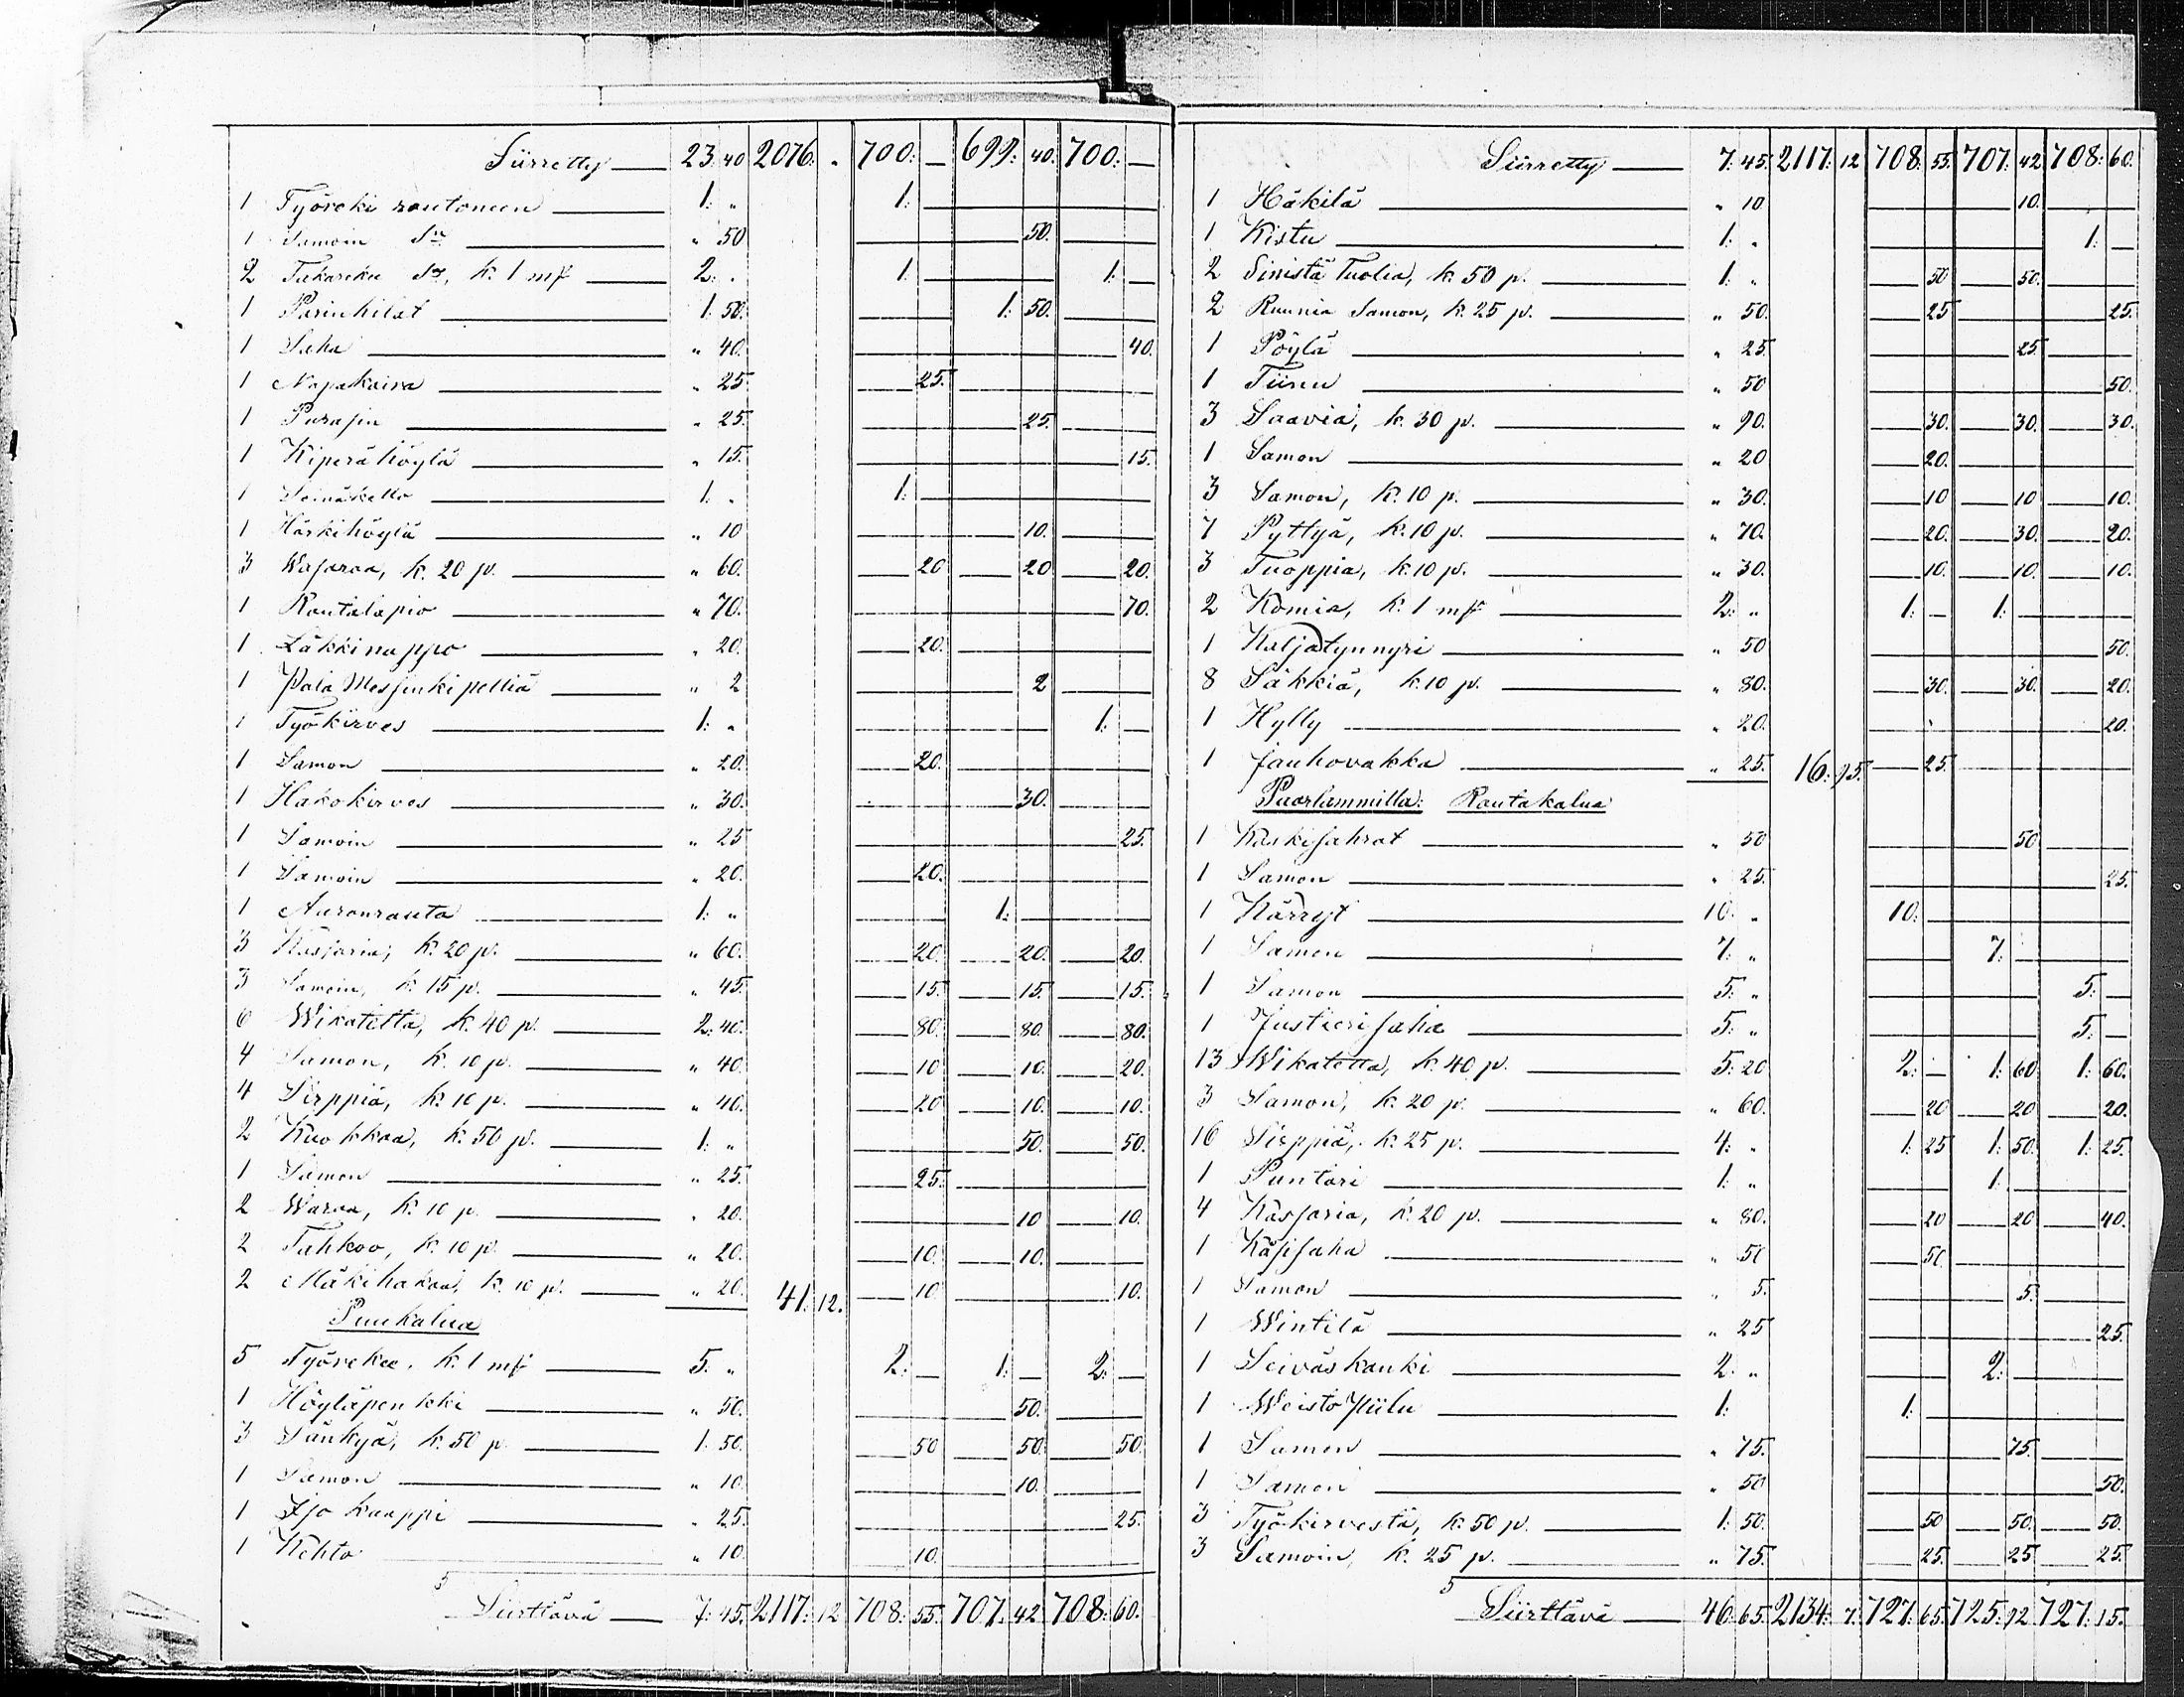 Siirretty 23 40 2076 „ 700: — 699: 40. 700: —
1 Työreki rautoneen 1: „ 1:
1 Samoin Sn „ 50 50.
2 Takarekee Sn, k. 1 mk 2: „ 1: 1: —
1 Parinhilat 1: 50. 1: 50.
1 Saha „ 40. 40.
1 Napakaira „ 25. 25.
1 Purasin „ 25. 25.
1 Kiperähöylä „ 15. 15.
1 Seinäkello 1: „ 1:
1 Härkihöylä „ 10 10.
3 Wasaraa, k. 20 p. „ 60. 20 20 20.
1 Rautalapio „ 70. 70.
1 Läkkinappo „ 20. 20.
1 Pala Messinkipeltiä „ 2 2
1 Työkirves 1: „ 1: —
1 Samon „ 20. 20.
1 Hakokirves „ 30. 30.
1 Samoin „ 25 25.
1 Samoin „ 20. 20.
1 Auranrauta 1: „ 1:
3 Kassaria, k. 20 p. „ 60. 20. 20. 20.
3 Samoin, k. 15 p. „ 45. 15. 15. 15.
6 Wikatetta, k. 40 p. 2: 40. 80. 80. 80.
4 Samon, k. 10 p. „ 40. 10 10. 20.
4 Sirppiä, k. 10 p. „ 40. 20 10. 10.
2 Kuokkaa, k. 50 p. 1: „ 50. 50.
1 Samon „ 25. 25.
2 Waraa, k. 10 p. „ 20. 10 10.
2 Tahkoo, k. 10 p. „ 20. 10. 10.
2 Mäkihakaa, k. 10 p. „ 20. 41: 12. 10 10.
Puukalua
5 Työrekee, k. 1 mk 5. „ 2: — 1: 2: —
1 Höyläpenkki „ 50. 50.
3 Sänkyä, k. 50 p. 1: 50. 50 50. 50.
1 Samon „ 10. 10.
1 Iso kaappi „ 25. 25.
1 Kehto „ 10. 10.
Siirttävä 7: 45. 2117: 12 708: 55. 707: 42 708: 60.
Siirretty 7: 45. 2117: 12 708: 55. 707: 42 708: 60.
1 Häkilä „ 10 10.
1 Kistu 1: „ 1: —
2 Sinistä Tuolia, k. 50 p. 1: „ 50 50.
2 Ruunia Samon, k. 25 p. „ 50. 25 25.
1 Pöytä „ 25. 25.
1 Tiinu „ 50 50.
3 Saavia, k. 30 p. „ 90. 30. 30. 30.
1 Samon „ 20 20.
3 Samon, k. 10 p. „ 30. 10 10 10.
7 Pyttyä, k. 10 p. „ 70. 20. 30. 20.
3 Tuoppia, k. 10 p. „ 30. 10. 10. 10.
2 Komia, k. 1 mk 2: „ 1: — 1:
1 Kaljatynnyri „ 50 50.
8 Säkkiä, k. 10 p. „ 80. 30. 30. 20.
1 Hylly „ 20. 20.
1 Jauhovakka „ 25. 16: 95. 25.
Puorlammilla: Rautakalua
1 Käskisahrat „ 50 50
1 Samon „ 25. 25.
1 Kärryt 10: „ 10:
1 Samon 7: „ 7:
1 Samon 5: „ 5: —
1 Justierisaha 5: „ 5: —
13 Wikatetta, k. 40 p. 5: 20 2: — 1: 60. 1: 60.
3 Samon, k. 20 p. „ 60. 20 20 20.
16 Sirppiä, k. 25 p. 4: „ 1: 25 1: 50. 1: 25.
1 Puntari 1: „ 1:
4 Kassaria, k. 20 p. „ 80. 20 20 40.
1 Käsisaha „ 50 50
1 Samon „ 5. 5.
1 Wintilä „ 25 25
1 Seiväskanki 2: „ 2:
1 Weisto Piilu 1: 1:
1 Samon „ 75. 75.
1 Samon „ 50 50.
3 Työkirvestä, k. 50 p. 1: 50. 50 50. 50.
3 Samoin, k. 25 p. „ 75. 25. 25 25.
Siirttävä 46 65. 2134: 7. 727: 65. 725: 92 727: 15.